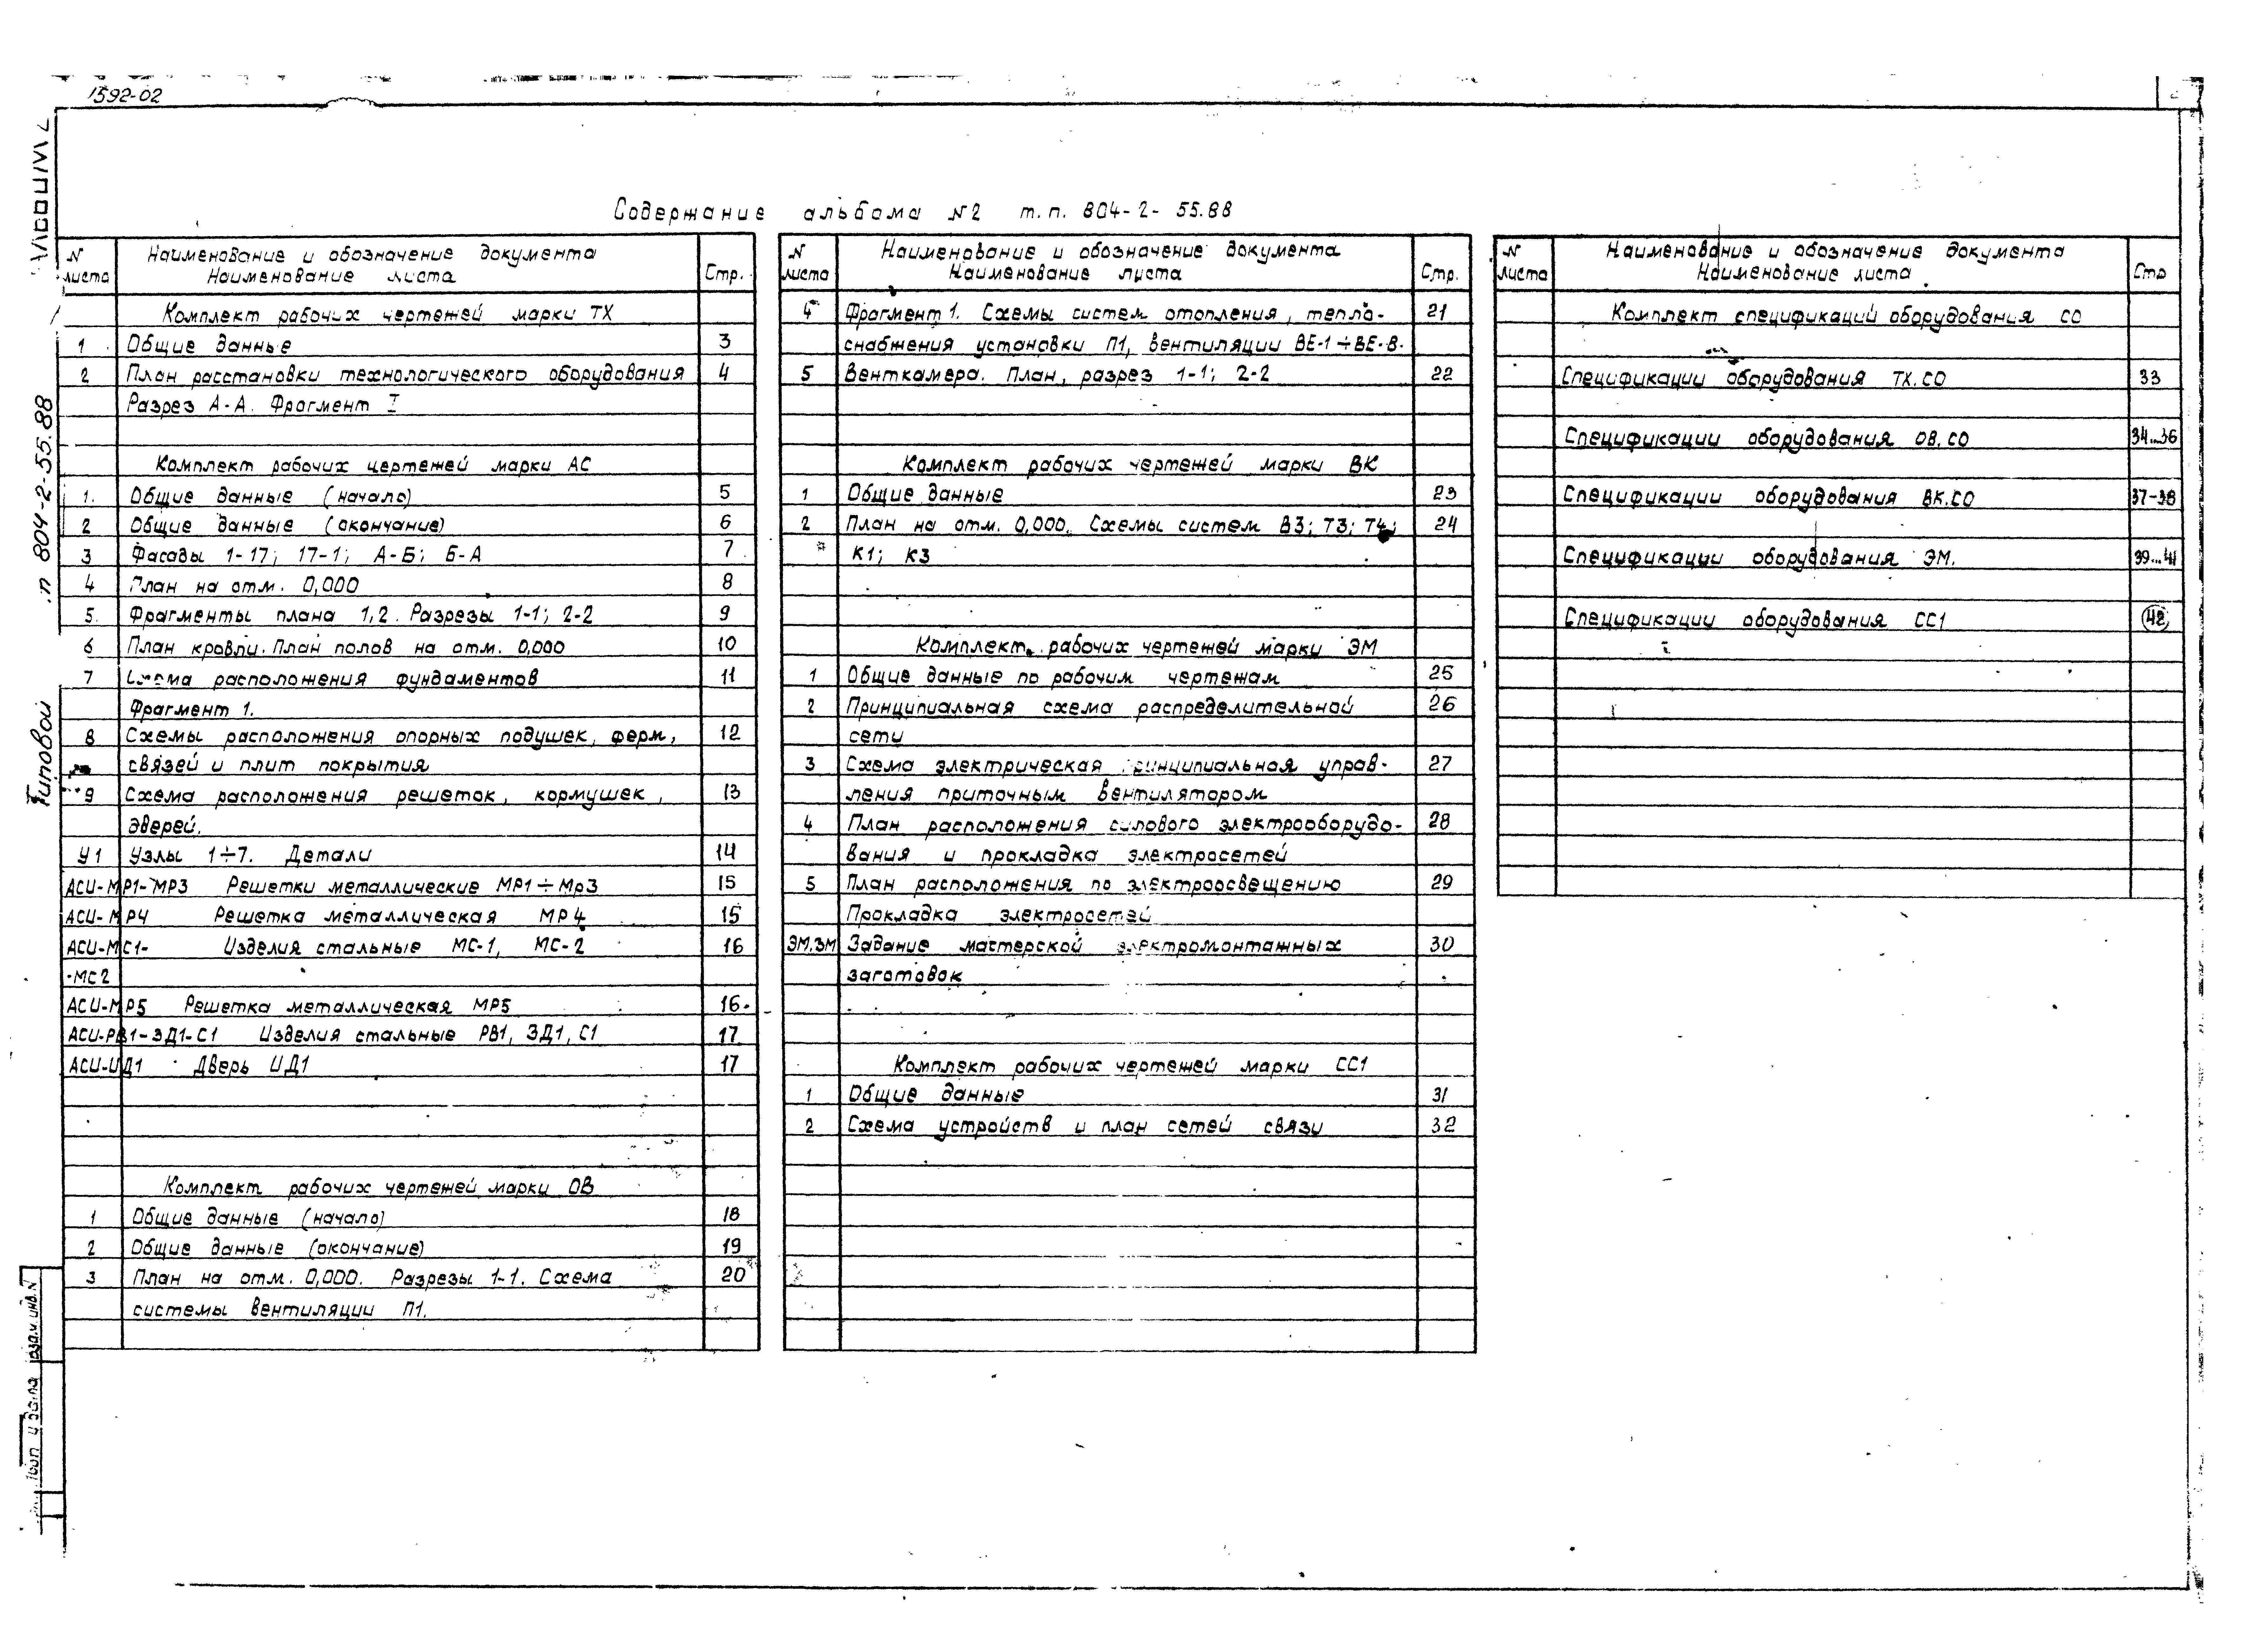 1592-02
2
Содержание альбома N2 т.п. 804-2-55.88
N листа Наименование и обозначение документа Наименование листа Стр.
Комплект рабочих чертежей марки ТХ
1 Общие данные 3
2 План расстановки технологического оборудования 4
Разрез А-А. Фрагмент I
Комплект рабочих чертежей марки АС
1. Общие данные (начало) 5
2 Общие данные (окончание) 6
3 Фасады 1-17; 17-1; А-Б; Б-А 7
4 План на отм. 0,000 8
5. Фрагменты плана 1,2. Разрезы 1-1; 2-2 9
6 План кровли. План полов на отм. 0,000 10
7 Схема расположения фундаментов 11
Фрагмент 1.
8 Схемы расположения опорных подушек, ферм, 12
связей и плит покрытия
9 Схема расположения решеток, кормушек, 13
дверей.
У1 Узлы 1÷7. Детали 14
АСИ-МР1-МР3 Решетки металлические МР1÷Мр3 15
АСИ-МР4 Решетка металлическая МР4 15
АСИ-МС1- Изделия стальные МС-1, МС-2 16
-МС2
АСИ-МР5 Решетка металлическая МР5 16
АСИ-РВ1-ЗД1-С1 Изделия стальные РВ1, ЗД1, С1 17
АСИ-ИД1 Дверь ИД1 17
Комплект рабочих чертежей марки ОВ
1 Общие данные (начало) 18
2 Общие данные (окончание) 19
3 План на отм. 0,000. Разрезы 1-1. Схема 20
системы вентиляции П1.
N листа Наименование и обозначение документа Наименование листа Стр.
4 Фрагмент 1. Схемы систем отопления, тепло- 21
снабжения установки П1, вентиляции ВЕ-1÷ВЕ-8.
5 Венткамера. План, разрез 1-1; 2-2 22
Комплект рабочих чертежей марки ВК
1 Общие данные 23
2 План на отм. 0,000. Схемы систем В3; Т3; Т4; 24
К1; К3
Комплект рабочих чертежей марки ЭМ
1 Общие данные по рабочим чертежам 25
2 Принципиальная схема распределительной 26
сети
3 Схема электрическая принципиальная управ- 27
ления приточным вентилятором
4 План расположения силового электрооборудо- 28
вания и прокладка электросетей
5 План расположения по электроосвещению 29
Прокладка электросетей
ЭМ.ЗМ Задание мастерской электромонтажных 30
заготовок
Комплект рабочих чертежей марки СС1
1 Общие данные 31
2 Схема устройств и план сетей связи 32
N листа Наименование и обозначение документа Наименование листа Стр
Комплект спецификаций оборудования СО
Спецификации оборудования ТХ.СО 33
Спецификации оборудования ОВ.СО 34...36
Спецификации оборудования ВК.СО 37-38
Спецификации оборудования ЭМ. 39...41
Спецификации оборудования СС1 42
Типовой
.п 804-2-55.88
Подп и дата
Взам инв. N